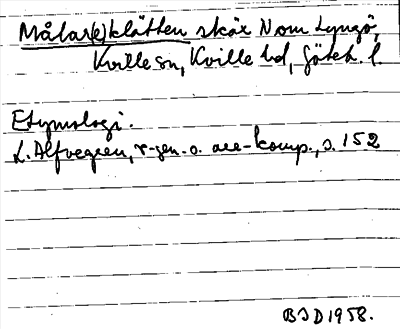 Målar(e)klätten skär N om Lyngö,
Kville sn, Kville hd, Göteb. l.
Etymologi.
L. Alfvegren, r-gen. o. are-komp., s. 152
BJD 1958.